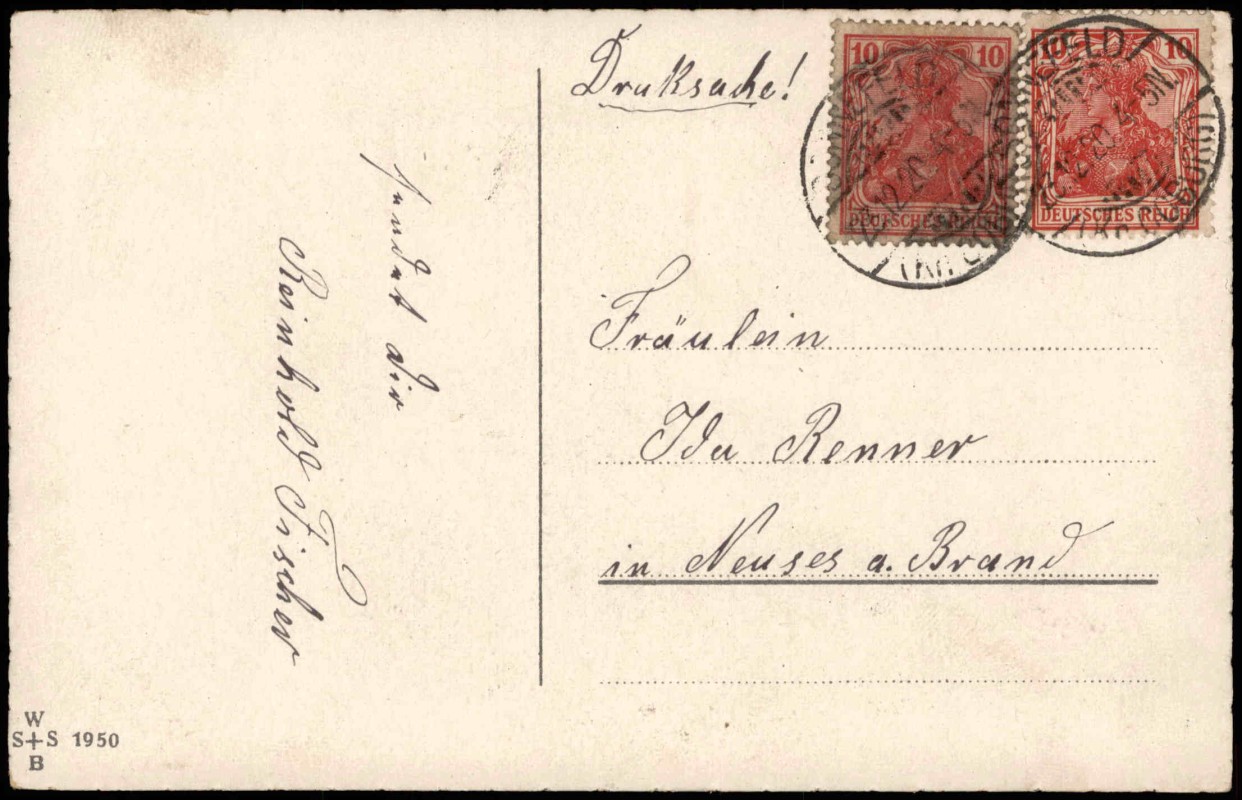 Druksache!
10 10
DEUTSCHES REICH
10 10
DEUTSCHES REICH
sendet dir
Reinhold Fischer
Fräulein
Ida Renner
in Neuses a. Brand
W
S+S 1950
B